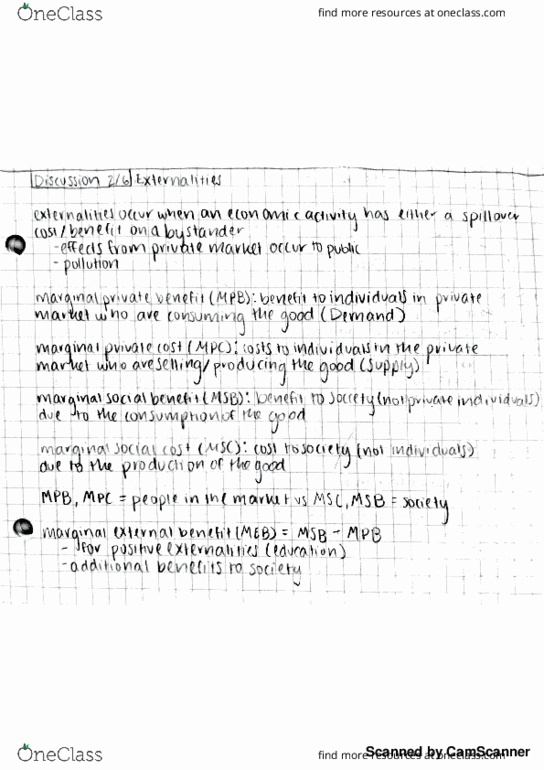 OneClass
find more resources at oneclass.com
Discussion 2/6 Externalities
externalities occur when an economic activity has either a spillover
cost/benefit on a bystander
-effects from private market occur to public
- pollution
marginal private benefit (MPB): benefit to individuals in private
market who are consuming the good (Demand)
marginal private cost (MPC): costs to individuals in the private
market who are selling/producing the good (supply)
marginal social benefit (MSB): benefit to society (not private individuals)
due to the consumption of the good
marginal social cost (MSC): cost to society (not individuals)
due to the production of the good
MPB, MPC = people in the market vs MSC, MSB = society
marginal external benefit (MEB) = MSB - MPB
- for positive externalities (education)
-additional benefits to society
OneClass
find more resources at oneclass.com
Scanned by CamScanner